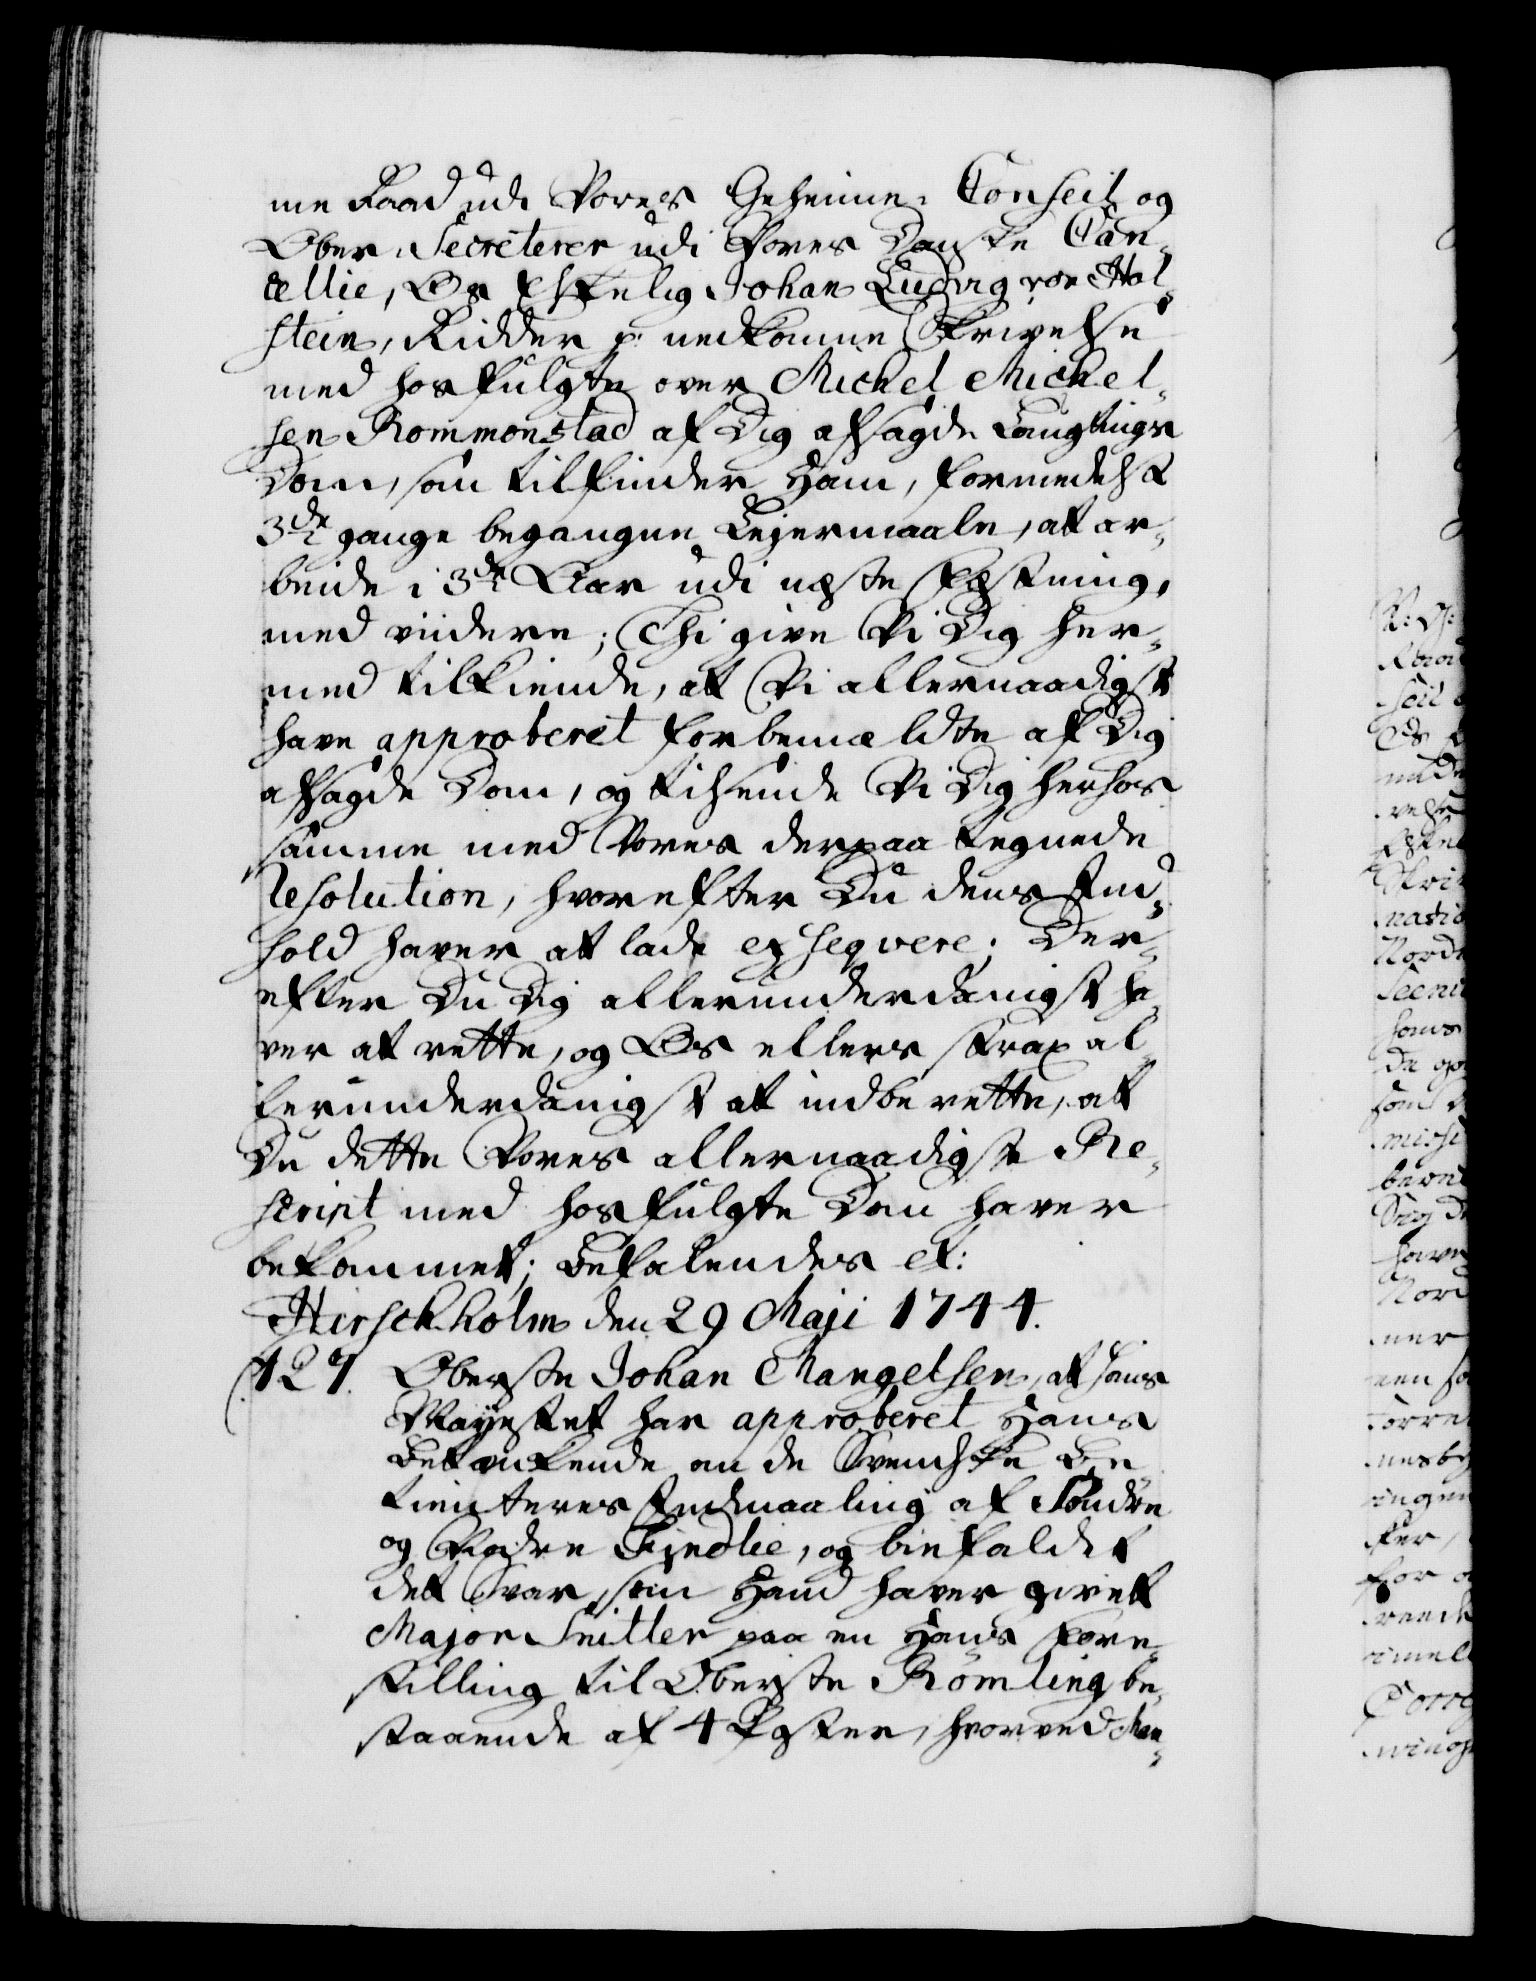 me Raad udi Vores Geheime-Conseil og
Ober-Secreterer udi Vores Danske Can-
cellie, Os Elskelig Johan Ludvig von Hol-
stein, Ridder p. nedkomne Skrivelse
med hosfulgte over Michel Michel-
sen Rommonstad af Dig afsagde Laugtings
Dom, som tilfinder Ham, formedelst
3de gange begangne Leyermaale, at ar-
beide i 3de Aar udi neste Fæstning,
med viidere; Thi give Vi Dig her-
med tilkiende, at Vi allernaadigst
have approberet forbemældte af Dig
afsagde Dom, og tilsende Vi Dig herhos
samme med Vores derpaa tegnede
Resolution, hvorefter Du dens Ind-
hold haver at lade exseqvere; Der-
efter Du Dig allerunderdanigst ha-
ver at rette, og Os ellers strax al-
lerunderdanigst at indberette, at
Du dette Vores allernaadigste Re-
script med hosfulgte Dom haver
bekommet; Befalendes et:
Hirschholm den 29 Maji 1744.
127. Oberste Johan Mangelsen, at Hans
Mayestet har approberet Hans
Betænkende om de Svenske Be-
tienteres Indmaaling af Søndre
og Nordre Fjndlie, og binfaldet
det Svar, som Hand haver givet
Major Snitler paa en Hans Fore-
stilling til Oberste Römling be-
staaende af 4 Poster, hvorved Man-